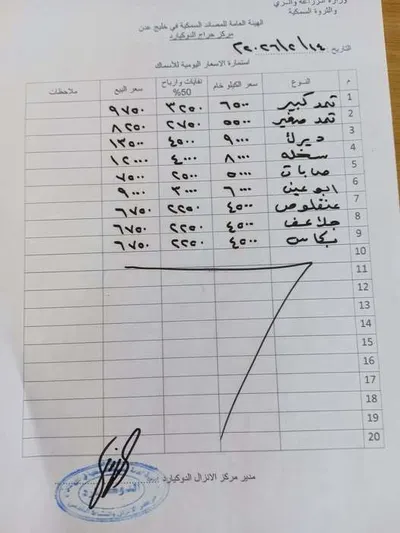 وزارة الزراعة والري
والثروة السمكية
الهيئة العامة للمصائد السمكية في خليج عدن
مركز حراج الدوكيارد
التاريخ: ٢٠٢٦/٢/٢٤
استمارة الاسعار اليومية للأسماك
م النوع سعر الكيلو خام نفايات وارباح 50% سعر البيع ملاحظات
1 ثمد كبير ٦٥٠٠ ٣٢٥٠ ٩٧٥٠
2 ثمد صغير ٥٥٠٠ ٢٧٥٠ ٨٢٥٠
3 ديرك ٩٠٠٠ ٤٥٠٠ ١٣٥٠٠
4 سخله ٨٠٠٠ ٤٠٠٠ ١٢٠٠٠
5 ٥٠٠٠ ٢٥٠٠ ٧٥٠٠
6 ابوعين ٦٠٠٠ ٣٠٠٠ ٩٠٠٠
7 عنفلوص ٤٥٠٠ ٢٢٥٠ ٦٧٥٠
8 ٤٥٠٠ ٢٢٥٠ ٦٧٥٠
9 ٤٥٠٠ ٢٢٥٠ ٦٧٥٠
10
11
12
13
14
15
16
17
18
19
20
مدير مركز الانزال الدوكيارد
الدوكيارد